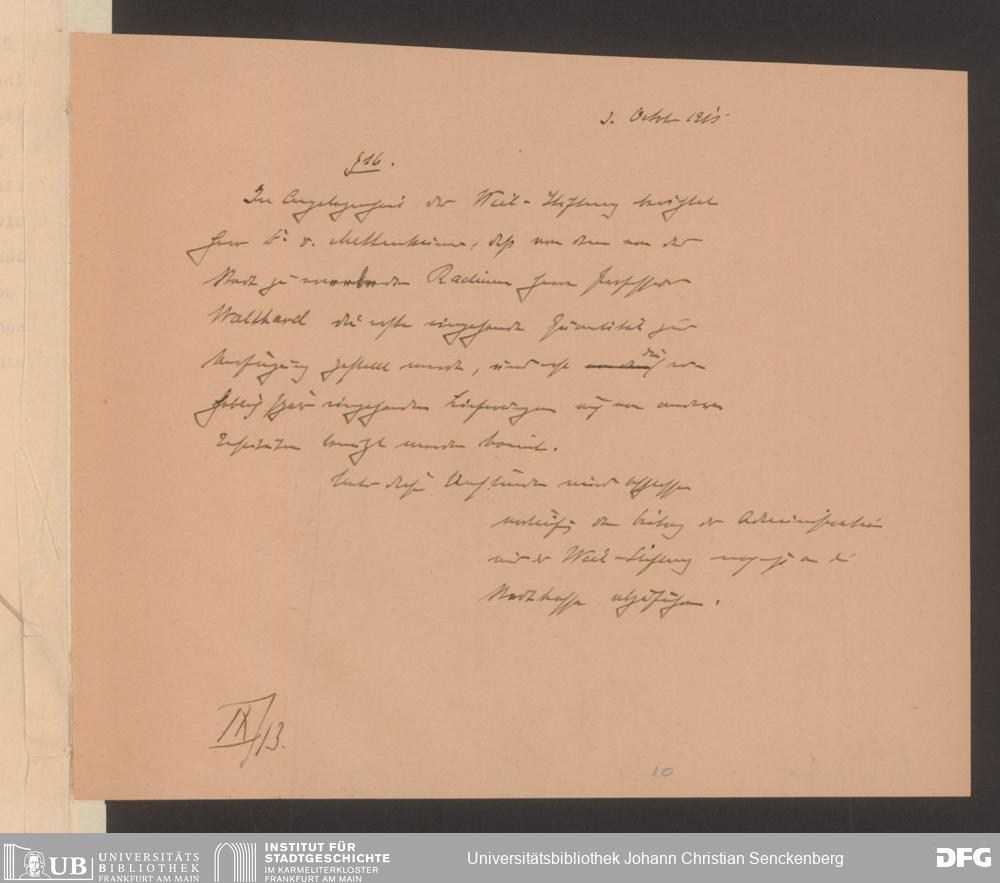 3. Octob 1915
§ 16.
In Angelegenheit der Weil-Stiftung berichtet
Herr Dr. v. Mettenheimer, daß von dem von der
Stadt zu Radium Herrn Professor
Walthard die erste eingehende Quantität zur
Verfügung gestellt werde, und erst die
später eingehenden Lieferungen von anderen
werden
Unter diesen Umständen wird beschlossen
den Beitrag der Administration
der Weil-Stiftung an die
Stadtkasse abzuführen.
IX/13.
10
UB UNIVERSITÄTS
BIBLIOTHEK
FRANKFURT AM MAIN
INSTITUT FÜR
STADTGESCHICHTE
IM KARMELITERKLOSTER
FRANKFURT AM MAIN
Universitätsbibliothek Johann Christian Senckenberg
DFG